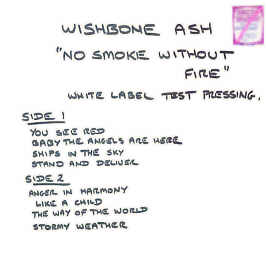 WISHBONE ASH
"NO SMOKE WITHOUT
FIRE"
WHITE LABEL TEST PRESSING.
SIDE 1
YOU SEE RED
BABY THE ANGELS ARE HERE
SHIPS IN THE SKY
STAND AND DELIVER
SIDE 2
ANGER IN HARMONY
LIKE A CHILD
THE WAY OF THE WORLD
STORMY WEATHER